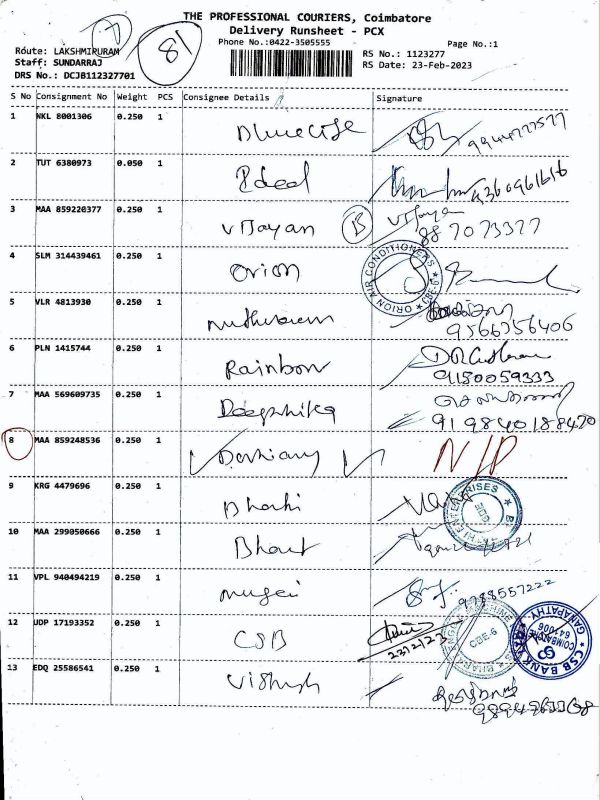 THE PROFESSIONAL COURIERS, Coimbatore
Delivery Runsheet - PCX
Phone No.:0422-3505555
Page No.:1
Route: LAKSHMIPURAM
Staff: SUNDARRAJ
DRS No.: DCJB112327701
RS No.: 1123277
RS Date: 23-Feb-2023
7
18
S No Consignment No Weight PCS Consignee Details Signature
1 NKL 8001306 0.250 1
2 TUT 6380973 0.050 1 Ideal 9360961616
3 MAA 859220377 0.250 1 Vijayan 15 Vijayan
887073377
4 SLM 314439461 0.250 1 Orion ORION AIR CONDITIONERS CBE-6
5 VLR 4813930 0.250 1
9566756406
6 PLN 1415744 0.250 1 Rainbow
9150059333
7 MAA 569609735 0.250 1 Deepshika
919840188470
8 MAA 859248536 0.250 1 N/D
9 KRG 4479696 0.250 1 Bharti ENTERPRISES CBE
10 MAA 299050666 0.250 1 Bharat
11 VPL 940494219 0.250 1 9788557222
12 UDP 17193352 0.250 1 CSB
23/2/23 CBE-6 CSB BANK GANAPATHY COIMBATORE 641006
13 EDQ 25586541 0.250 1